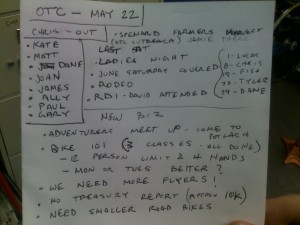 OTC - MAY 22
CHRIS - OUT
· KATE
· MATT
· DANE
· JOAN
· JAMES
· ALLY
· PAUL
· GARY
· SPENARD FARMERS MARKET
(OTC OUTREACH) JAMIE THERE
LAST SAT
· LADIES NIGHT
· JUNE SATURDAY COVERED
· RODEO
· RDI - DAVID ATTENDED
1 - LUCAS
8 - CHRIS
15 - FISH
22 - TYLER
29 - DANE
NEW BIZ
· ADVENTURERS MEET UP - COME TO
POTLATCH
· BIKE 101 (3 CLASSES - ALL DONE)
- 12 PERSON LIMIT 2 4 HANDS
- MON OR TUES BETTER?
· WE NEED MORE FLYERS!
· NO TREASURY REPORT (APPROX 10K)
· NEED SMALLER ROAD BIKES